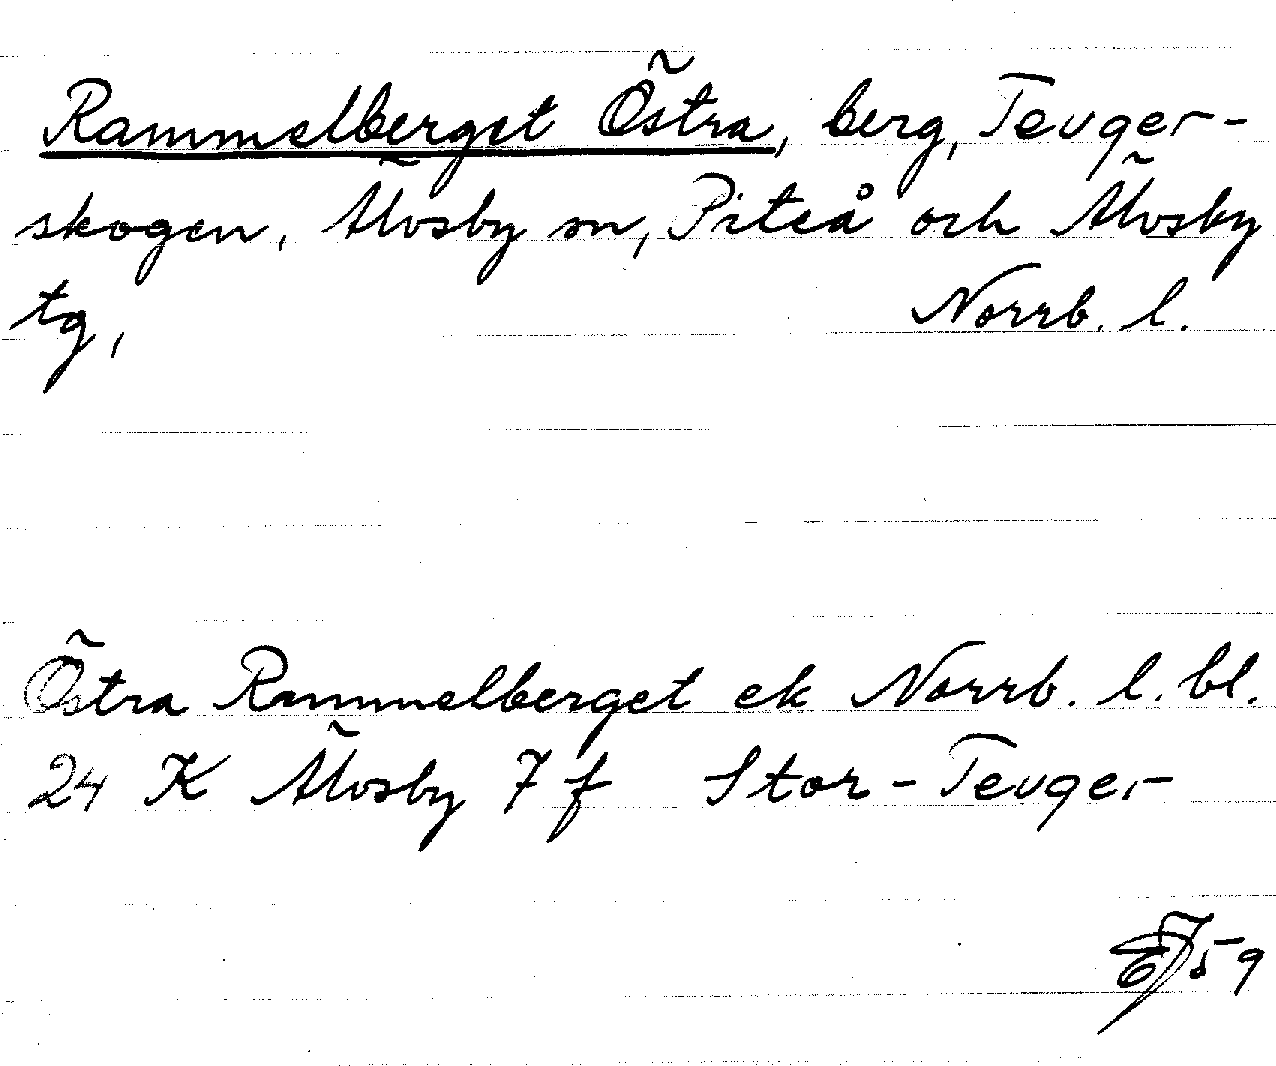 Rammelberget Östra, berg, Teuger-
skogen, Älvsby sn, Piteå och Älvsby
tg, Norrb. l.
Östra Rammelberget ek Norrb. l. bl.
24 K Älvsby 7 f Stor-Teuger
EJ 59